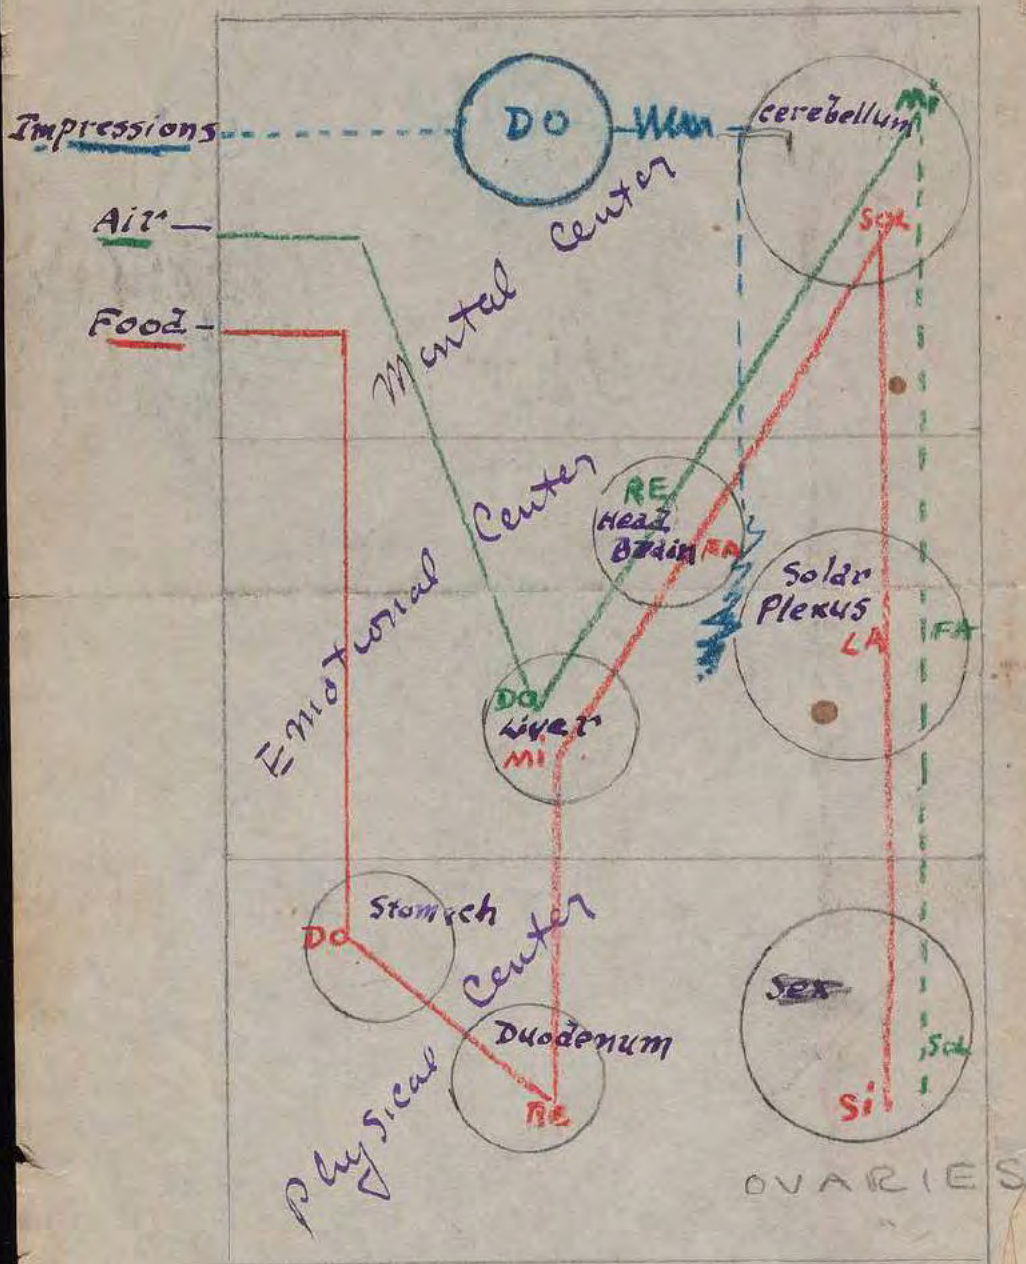 Impressions
DO
cerebellum
Mi
Air
Mental Center
Sol
Food
Emotional Center
RE
Head
Brain FA
Solar
Plexus
LA
FA
Do
Liver
Mi
Stomach
Do
Physical Center
Sex
Duodenum
Sol
Re
Si
OVARIES